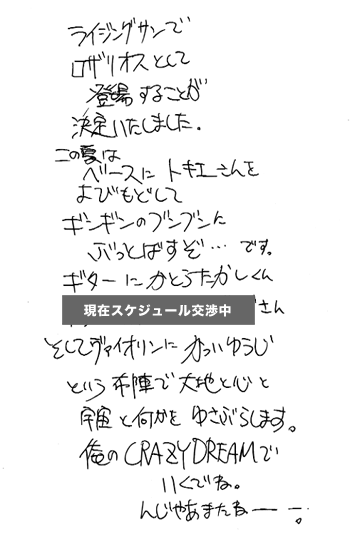 ライジングサンで
ロザリオスとして
登場することが
決定いたしました.
この夏は
ベースに トキエさんを
よびもどして
ギンギンのブンブンに
ぶっとばすぞ… です。
ギターにかとうたかしくん
現在スケジュール交渉中
さん
そしてヴァイオリンに かついゆうじ
という布陣で大地と心と
宇宙と何かをゆさぶらします。
俺のCRAZY DREAMで
いくでね。
んじゃあまたねー 。